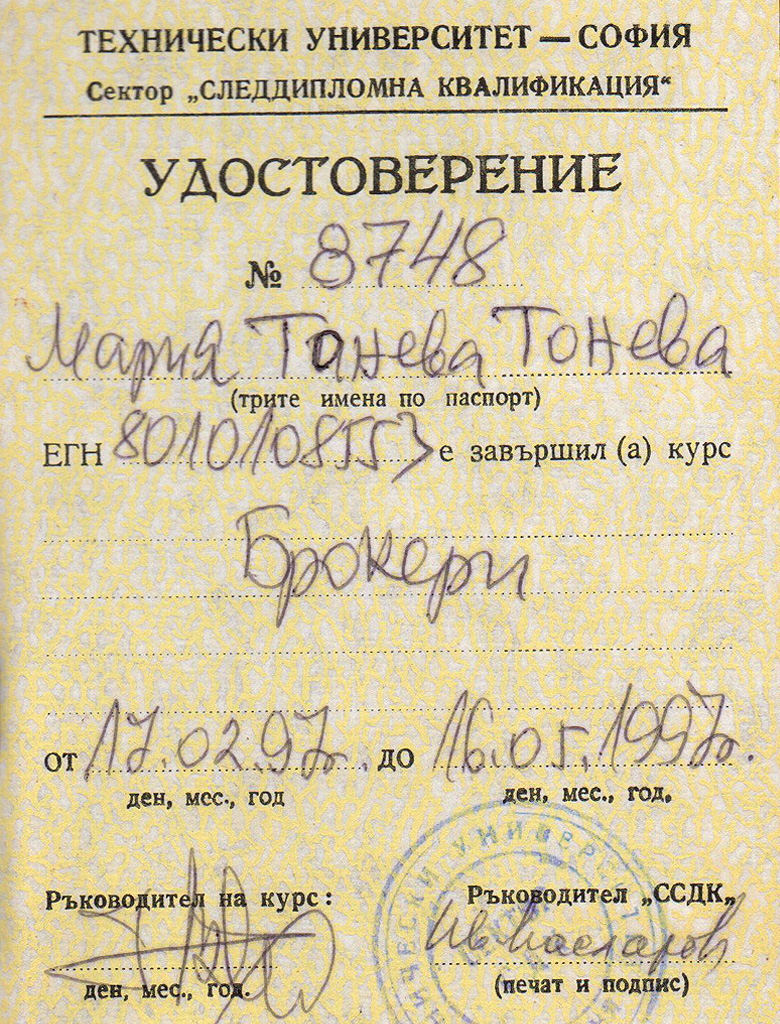 ТЕХНИЧЕСКИ УНИВЕРСИТЕТ — СОФИЯ
Сектор „СЛЕДДИПЛОМНА КВАЛИФИКАЦИЯ“
УДОСТОВЕРЕНИЕ
№ 8748
Мария Танева Тонева
(трите имена по паспорт)
ЕГН 8010108553 е завършил (а) курс
Брокери
от 17.02.97г. до 16.05.1997г.
ден, мес., год ден, мес., год,
Ръководител на курс: Ръководител „ССДК„
ден, мес., год. (печат и подпис)